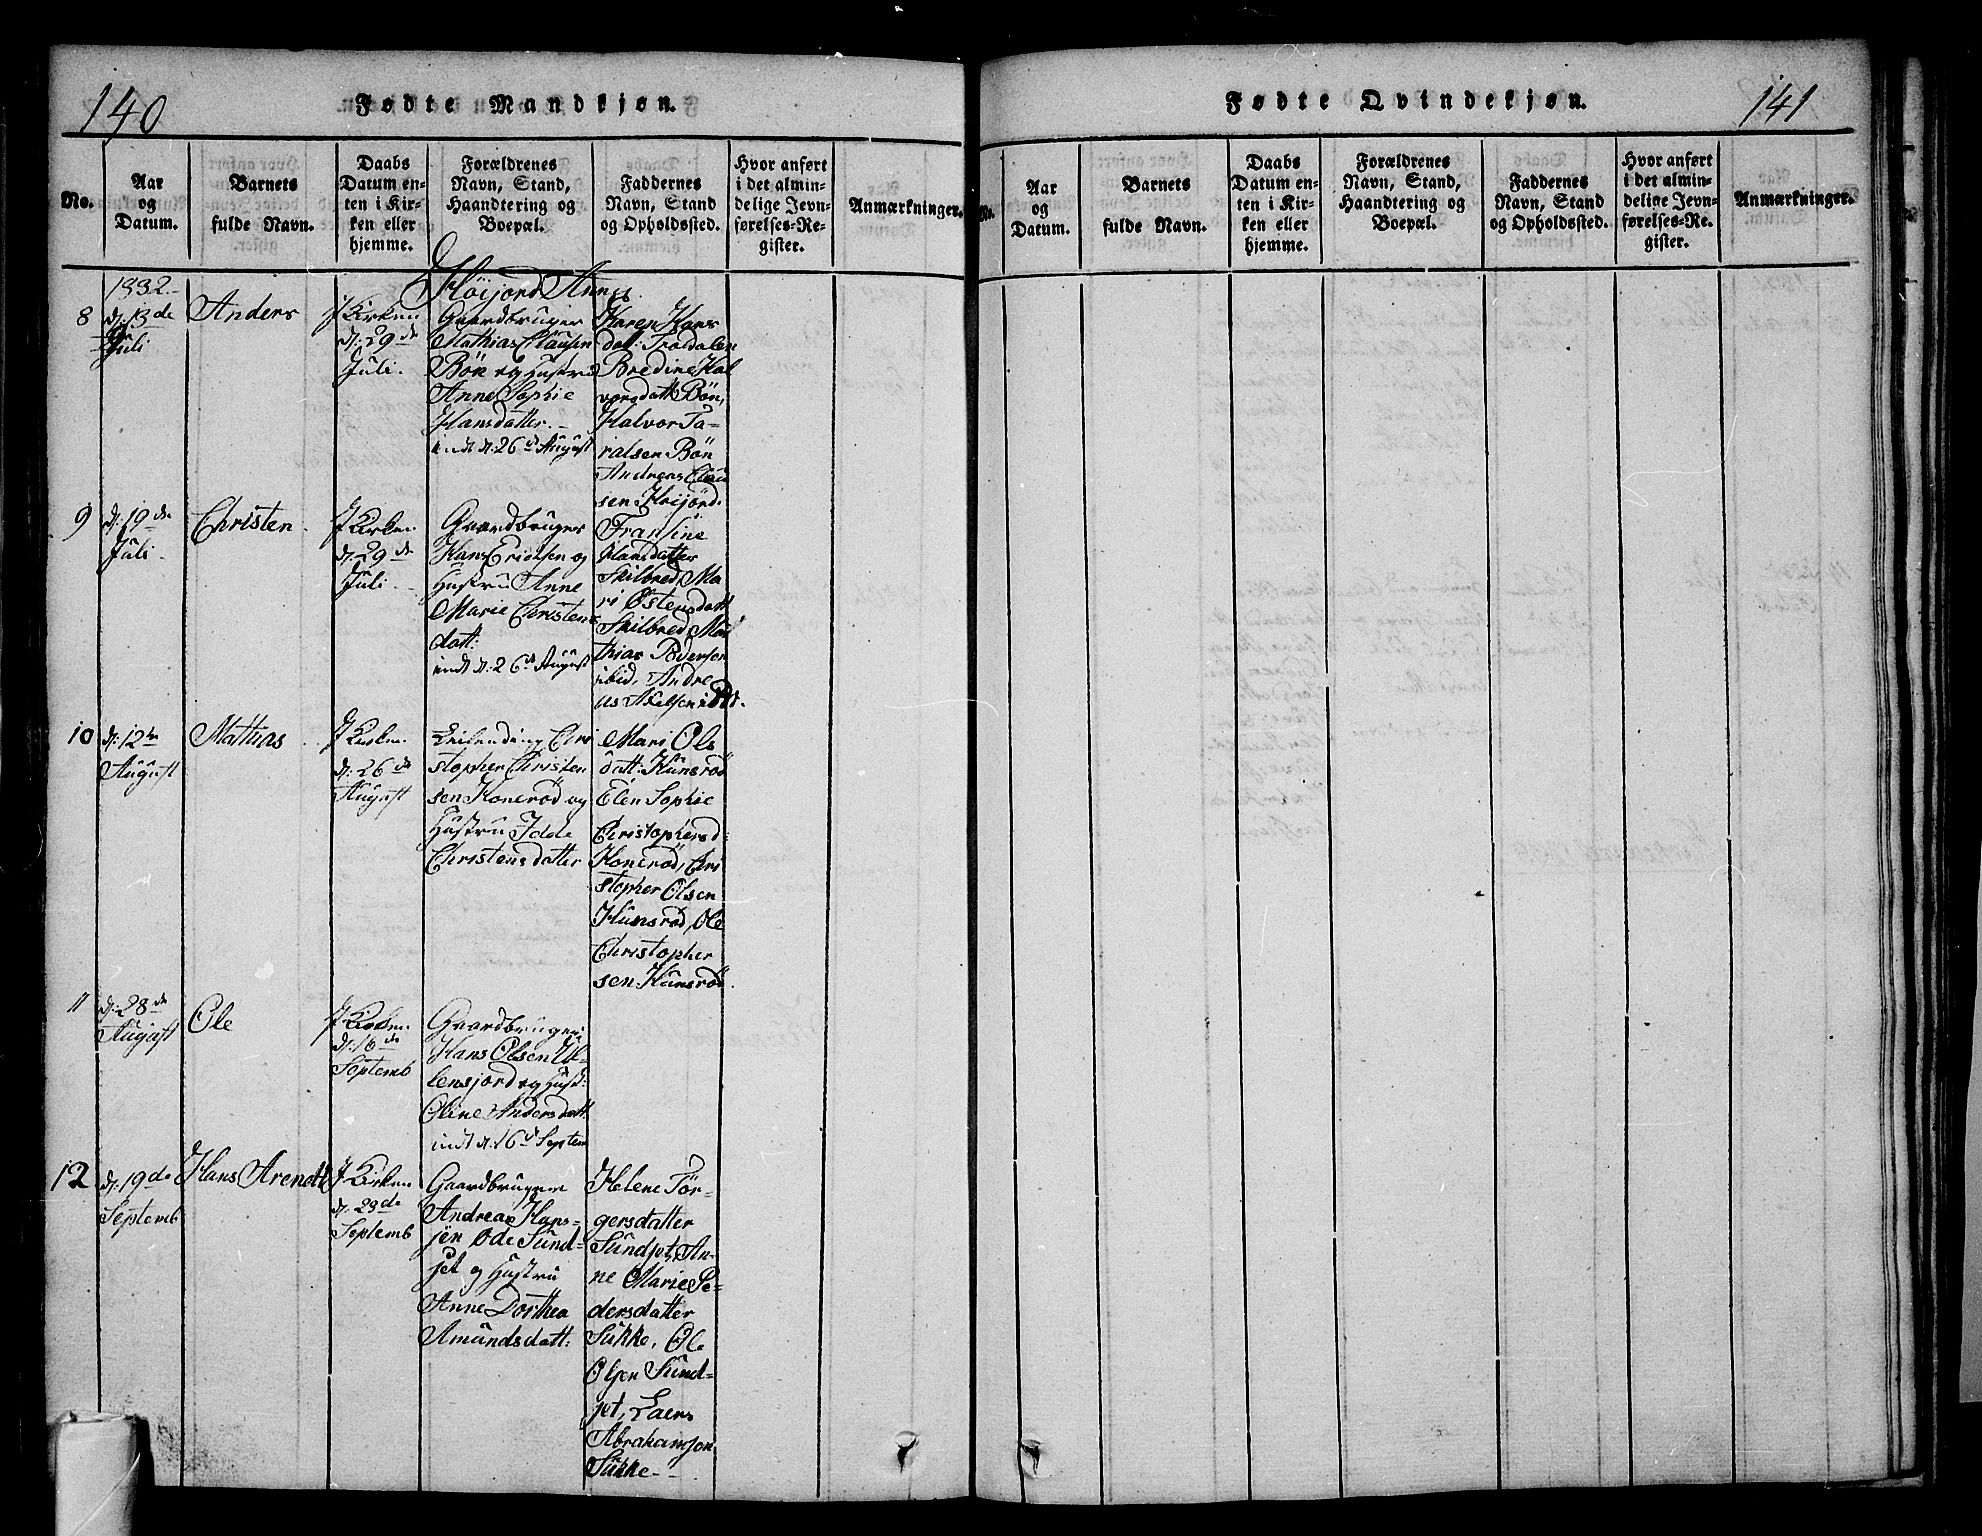 140
Fødte Mandkjøn.
No.
Aar
og
Datum.
Barnets
fulde Navn.
Daabs
Datum en-
ten i Kir-
ken eller
hjemme.
Forældrenes
Navn, Stand,
Haandtering og
Boepæl.
Faddernes
Navn, Stand
og Opholdssted.
Hvor anført
i det almin-
delige Jevn-
førelses-Re-
gister.
Anmærkninger.
1832.
Høijord Annex.
8
d: 13de
Juli
Anders
J Kirken
d: 29de
Juli.
Gaardbruger
Mathias Clausen
Bön og Hustrue
Anne Sophie
Hansdatter.-
indt d: 26de August
Karen Hans
dat: Trædalen
Bredine Hal
vorsdatt Bön,
Halvor Ta-
ralsen Bön
Andreas Clau
sen Höijord.
9
d: 19de
Juli.
Christen.
J Kirken
d: 29de
Juli.
Gaardbruger
Hans Erichsen og
Hustru Anne
Marie Christens
datt:
indt d: 26de August
Fransine
Hansdatter
Skilbred, Ma
ri Østensdatt
Skilbred, Ma
thias Pedersen
ibid, Andre
as Axelsen ibd.
10
d: 12te
August
Mathias
J Kirken
d: 26de
August
Leilending Chri
stopher Christen
sen Konerød og
Hustru Idde
Christensdatter
Mari Ols
datt: Kunsröd
Elen Sophie
Christophersd:
Konerød, Chri
stopher Olsen
Kunsröd, Ole
Christopher
sen Kunsröd.
11
d: 28de
August
Ole
J Kirken
d: 16de
Septemb
Gaardbruger
Hans Olsen Ul-
lensjord og Hust:
Oline Andersdatt
indt d: 16de Septem
12
d: 19de
Septemb
Hans Arendt
J Kirken
d: 23de
Septemb
Gaardbruger
Andreas Hans-
sen Øde Sund-
set og Hustru
Anne Dorthea
Amundsdatt:
Helene Tör-
gersdatter
Sundset, An-
ne Marie Pe-
dersdatter
Sukke, Ole
Olsen Sund-
set, Laers
Abrahamsen
Sukke-
Fødte Qvindekjøn.
141
No.
Aar
og
Datum.
Barnets
fulde Navn.
Daabs
Datum en-
ten i Kir-
ken eller
hjemme.
Forældrenes
Navn, Stand,
Haandtering og
Boepæl.
Faddernes
Navn, Stand
og Opholdssted.
Hvor anført
i det almin-
delige Jevn-
førelses-Re-
gister.
Anmærkninger.